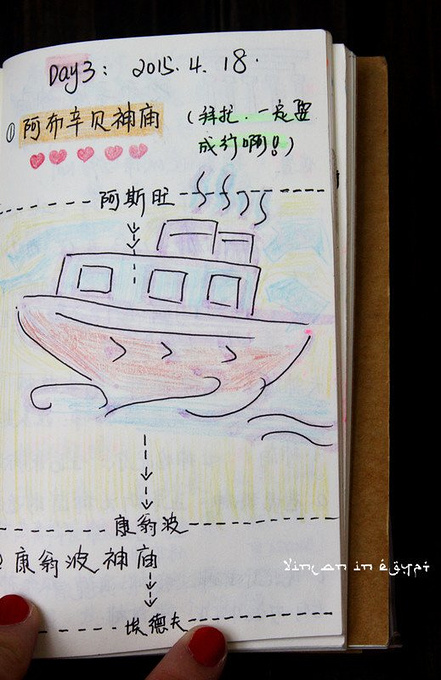 Day3: 2015.4.18.
①阿布辛贝神庙
(拜托.一定要
成行啊!)
阿斯旺
康翁波
康翁波神庙
埃德夫
Yinan in égypt